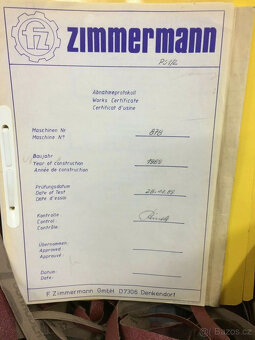 fz zimmermann
Abnahmeprotokoll
Works Certificate
Certificat d'usine
Maschinen Nr
Machine No
878
Baujahr
Year of construction
Année de construction
1989
Prüfungsdatum
Date of Test
Date d'essai
Kontrolle
Control:
Contrôle:
Übernommen:
Approved:
Approuvé:
Datum:
Date:
F. Zimmermann GmbH D7306 Denkendorf
Bazos.cz